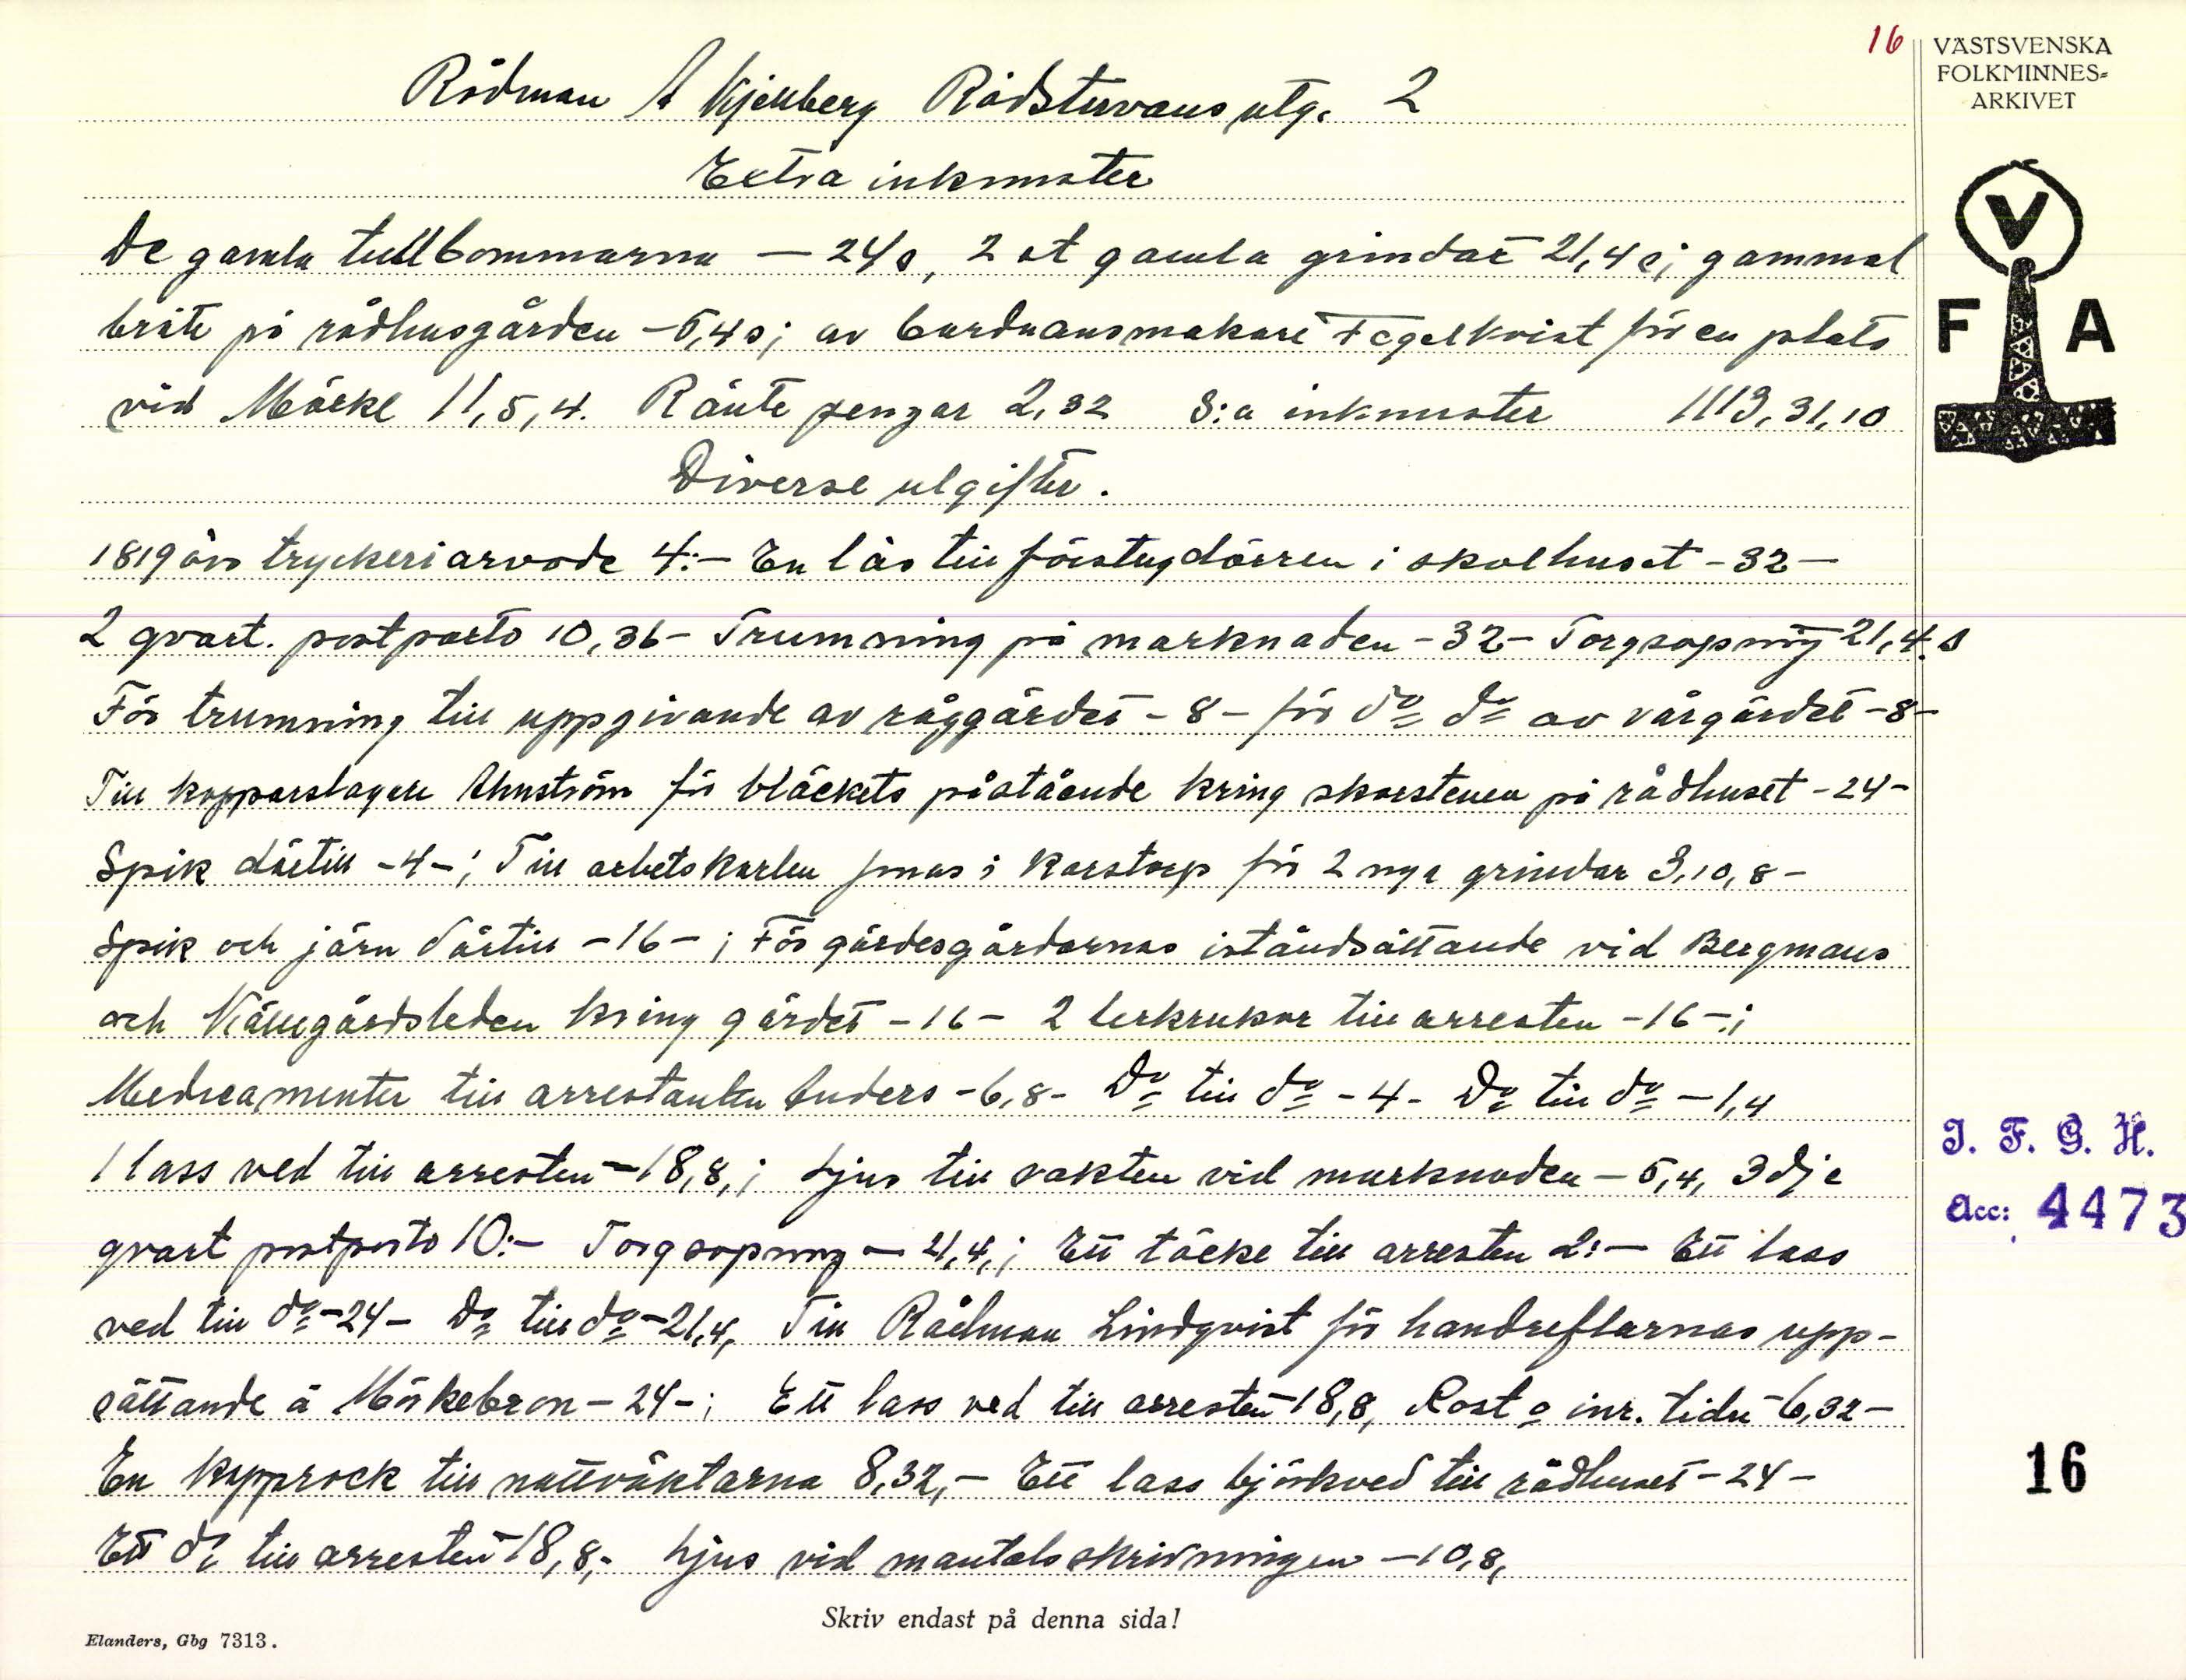 16
VÄSTSVENSKA
FOLKMINNES-
ARKIVET
Rådman A Kjellberg Rådstuvans utg. 2
Extra inkomster
De gamla tullbommarna — 24 s, 2 st gamla grindar 21,4 s; gammal
bråte på rådhusgården - 5,4 s; av corduansmakare Fegelkvist för en plats
vid Möcke 11,5,4. Ränte pengar 2,32 S:a inkomster 1113,31,10
Diverse utgifter.
1819 års tryckeriarvode 4:- En lås till förstugdörren i skolhuset - 32 -
2 qvart. postporto 10,36 - Trumning på marknaden - 32 - Torgsopning 21,4 s
För trumning till uppgivande av råggärdet - 8 - för do do av vårgärdet - 8 -
Till kopparslagare Ahnström för bläckets påstående kring skorstenen på rådhuset - 24 -
Spik därtill - 4 -; Till arbetskarlen Jonas i Karstorp för 2 nya grindar 3,10,8 -
Spik och järn därtill - 16 - ; För gärdesgårdarnas iståndsättande vid Bergmans
och Källegårdsleden kring gärdet - 16 - 2 lerkrukor till arresten - 16 - ;
Medicamenter till arrestanten Anders - 6,8 - Do till do - 4 - Do till do - 1,4
1 lass ved till arresten - 18,8, ; Ljus till vakten vid marknaden - 5,4, 3dje
qvart postporto 10:- Torgsopning - 21,4, ; Ett täcke till arresten 2:- Ett lass
ved till do - 24 - Do till do - 21,4, Till Rådman Lindqvist för handreflarnas upp-
sättande å Mörkebron - 24 - ; Ett lass ved till arresten - 18,8, Post o inr. tidn - 6,32 -
En kapprock till nattväktarna 8,32, - Ett lass björkved till rådhuset - 24 -
Ett do till arresten - 18,8, - Ljus vid mantalsskrivningen - 10,8,
V
F A
I. F. G. H.
Acc: 4473
16
Skriv endast på denna sida!
Elanders, Gbg 7313.